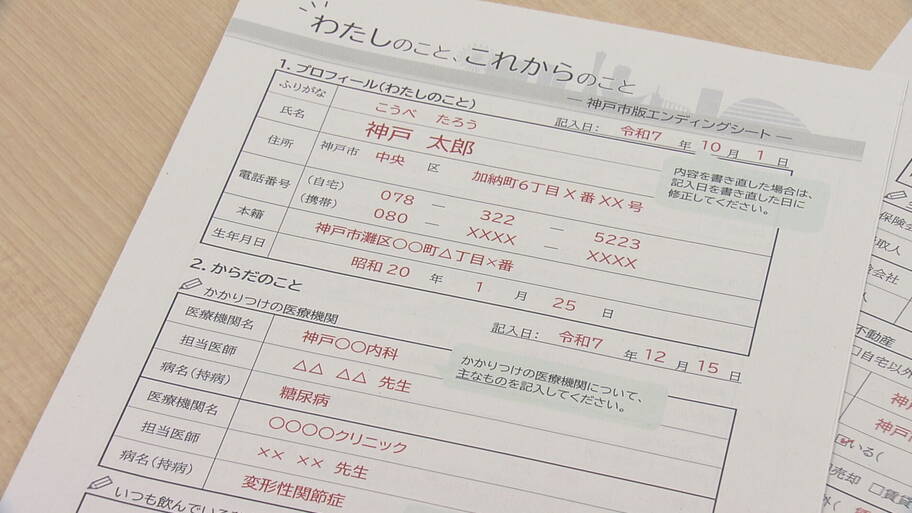 わたしのこと、これからのこと
― 神戸市版エンディングシート ―
1. プロフィール(わたしのこと)
記入日: 令和7 年 10 月 1 日
ふりがな こうべ たろう
氏名 神戸 太郎
住所 神戸市 中央 区 加納町6丁目×番××号
内容を書き直した場合は、
記入日を書き直した日に
修正してください。
電話番号 (自宅) 078 ― 322 ― 5223
(携帯) 080 ― XXXX ― XXXX
本籍 神戸市灘区〇〇町△丁目×番
生年月日 昭和20 年 1 月 25 日
2. からだのこと
記入日: 令和7 年 12 月 15 日
かかりつけの医療機関
医療機関名 神戸〇〇内科
担当医師 △△ △△ 先生
病名(持病) 糖尿病
かかりつけの医療機関について、
主なものを記入してください。
医療機関名 〇〇〇〇クリニック
担当医師 ×× ×× 先生
病名(持病) 変形性関節症
いつも飲んでいる
不動産
□自宅以外
神戸
いる(
売却 □賃貸